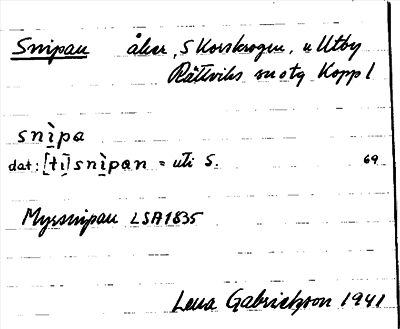 Snipan åker, S Korskrogen, u Utby
Rättviks sn o tg Kopp l
snìpa
dat: [tı] snìpan = uti S. 69
Myrsnipan LSA 1835
Lena Gabrielsson 1941